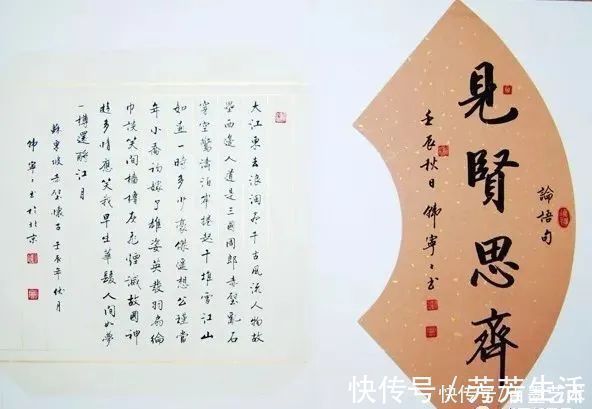 大江東去浪淘盡千古風流人物故
壘西邊人道是三國周郎赤壁亂石
穿空驚濤拍岸捲起千堆雪江山
如畫一時多少豪傑遙想公瑾當
年小喬初嫁了雄姿英發羽扇綸
巾談笑間檣櫓灰飛煙滅故國神
遊多情應笑我早生華髮人間如夢
一樽還酹江月
蘇東坡赤壁懷古 壬辰年秋月
寧〻書於北京
論語句
見賢思齊
壬辰秋日 寧〻書
快传号 / 芳芳生活